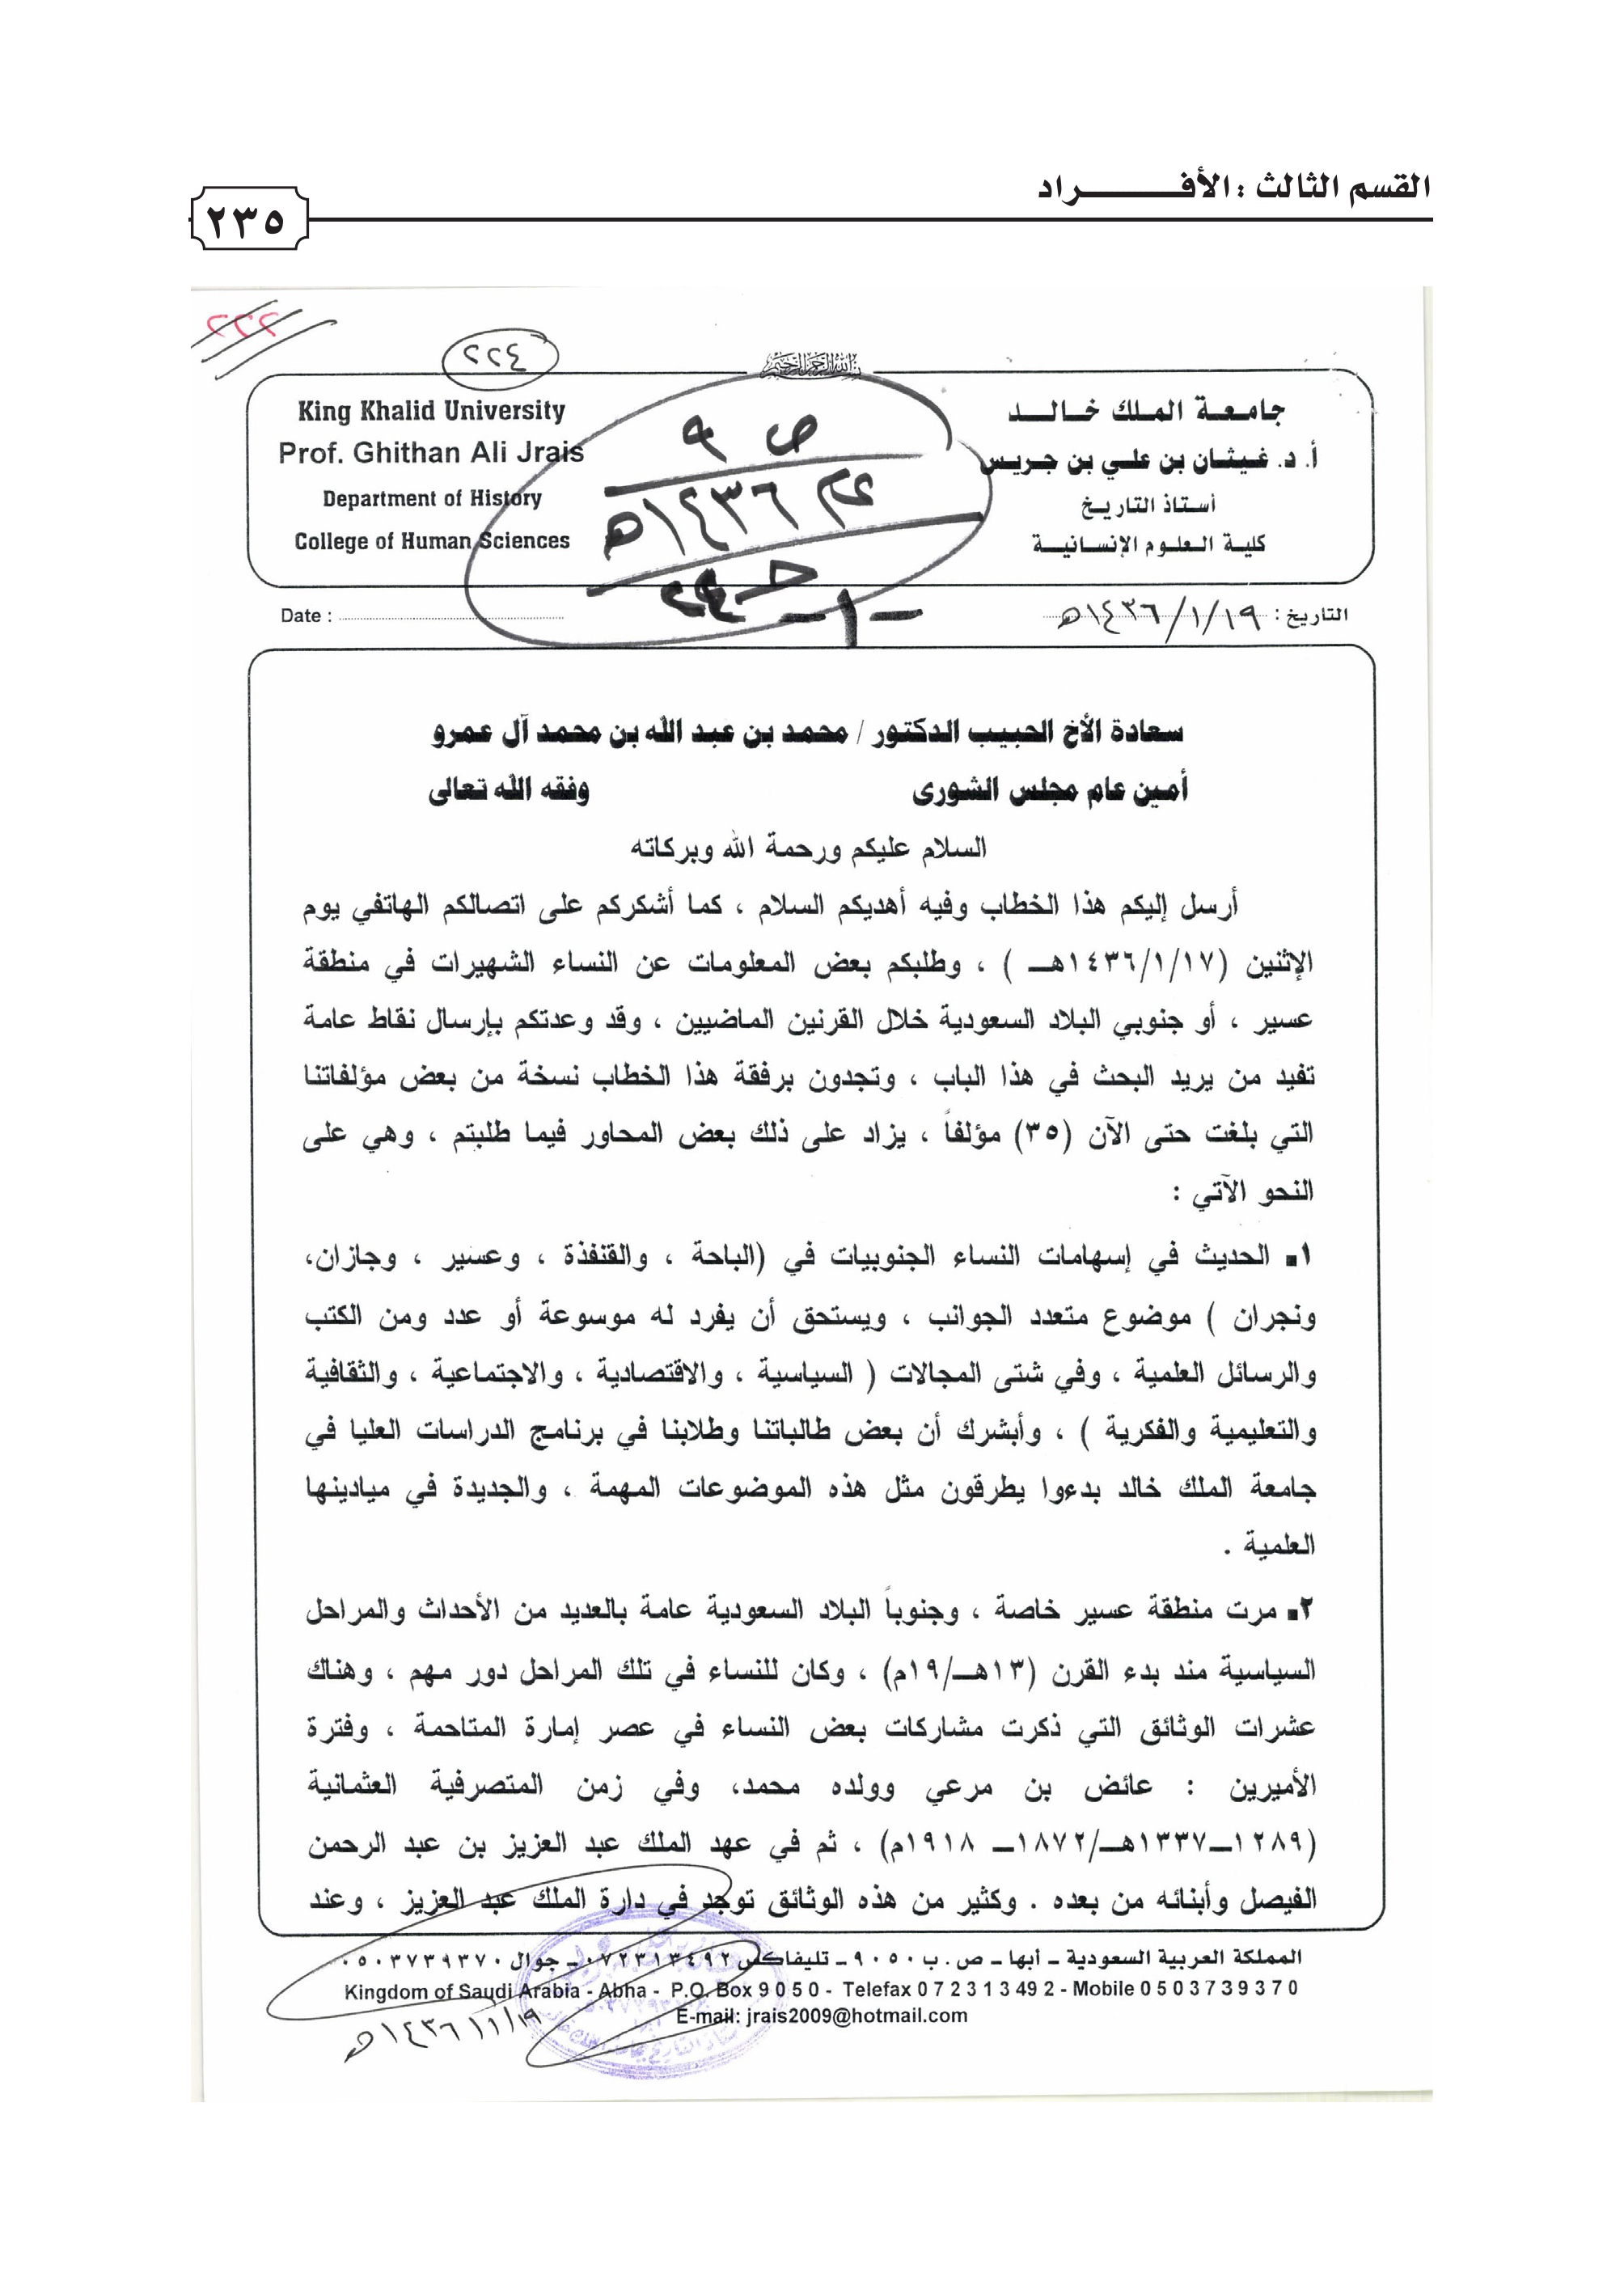 القسم الثالث : الأفـــــــراد
٢٣٥
٢٢٢
٢٢٤
بسم الله الرحمن الرحيم
King Khalid University
Prof. Ghithan Ali Jrais
Department of History
College of Human Sciences
جامـعـة الملـك خـالــد
أ. د. غـيـثـان بن علـي بن جريس
أسـتـاذ التاريـخ
كلـيـة العلـوم الإنسـانيـة
ص ٩
١٤٣٦هـ
-١-
Date :
التاريخ : ١٩/١/١٤٣٦هـ
سعادة الأخ الحبيب الدكتور / محمد بن عبد الله بن محمد آل عمرو
أمين عام مجلس الشورى وفقه الله تعالى
السلام عليكم ورحمة الله وبركاته
أرسل إليكم هذا الخطاب وفيه أهديكم السلام ، كما أشكركم على اتصالكم الهاتفي يوم
الإثنين (١٤٣٦/١/١٧هــ ) ، وطلبكم بعض المعلومات عن النساء الشهيرات في منطقة
عسير ، أو جنوبي البلاد السعودية خلال القرنين الماضيين ، وقد وعدتكم بإرسال نقاط عامة
تفيد من يريد البحث في هذا الباب ، وتجدون برفقة هذا الخطاب نسخة من بعض مؤلفاتنا
التي بلغت حتى الآن (٣٥) مؤلفاً ، يزاد على ذلك بعض المحاور فيما طلبتم ، وهي على
النحو الآتي :
١. الحديث في إسهامات النساء الجنوبيات في (الباحة ، والقنفذة ، وعسير ، وجازان،
ونجران ) موضوع متعدد الجوانب ، ويستحق أن يفرد له موسوعة أو عدد ومن الكتب
والرسائل العلمية ، وفي شتى المجالات ( السياسية ، والاقتصادية ، والاجتماعية ، والثقافية
والتعليمية والفكرية ) ، وأبشرك أن بعض طالباتنا وطلابنا في برنامج الدراسات العليا في
جامعة الملك خالد بدءوا يطرقون مثل هذه الموضوعات المهمة ، والجديدة في ميادينها
العلمية .
٢. مرت منطقة عسير خاصة ، وجنوباً البلاد السعودية عامة بالعديد من الأحداث والمراحل
السياسية مند بدء القرن (١٣هــ/١٩م) ، وكان للنساء في تلك المراحل دور مهم ، وهناك
عشرات الوثائق التي ذكرت مشاركات بعض النساء في عصر إمارة المتاحمة ، وفترة
الأميرين : عائض بن مرعي وولده محمد، وفي زمن المتصرفية العثمانية
(١٢٨٩ــ١٣٣٧هــ/١٨٧٢ــ ١٩١٨م) ، ثم في عهد الملك عبد العزيز بن عبد الرحمن
الفيصل وأبنائه من بعده . وكثير من هذه الوثائق توجد في دارة الملك عبد العزيز ، وعند
المملكة العربية السعودية ـ أبها ـ ص . ب ٩٠٥٠ ـ تليفاكس ٠٧٢٣١٣٤٩٢ ـ جوال ٠٥٠٣٧٣٩٣٧٠
Kingdom of Saudi Arabia - Abha - P.O. Box 9 0 5 0 - Telefax 0 7 2 3 1 3 49 2 - Mobile 0 5 0 3 7 3 9 3 7 0
E-mail: jrais2009@hotmail.com
١٩/١/١٤٣٦هـ